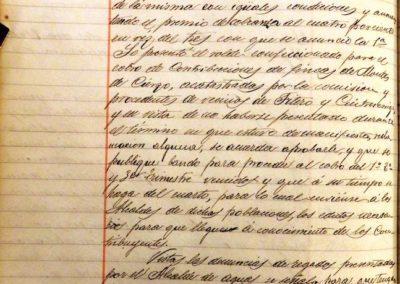 de la misma con iguales condiciones y aumen
tando el premio de cobranza al cuatro por ciento
en vez del tres con que se anunció la 1ª
Se presentó el reparto confeccionado para el
cobro de Contribuciones de fincas de Montes
de Cierzo, catastradas por la comisión y
procedentes de vecinos de Fitero y Cintruénigo
y en vista de no haberse presentado durante
el término en que estuvo de manifiesto, recla
mación alguna, se acuerda aprobarla y que se
publique bando para proceder al cobro del 1º 2º
y 3er trimestre vencidos y que á su tiempo se
haga del cuarto, para lo cual envíense á los
Alcaldes de dichas poblaciones los edictos necesa
rios para que llegue á conocimiento de los Con
tribuyentes.
Vistas las denuncias de regados presentadas
por el Alcalde de aguas